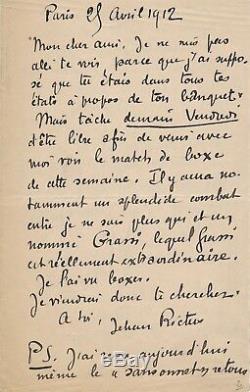 Paris 25 Avril 1912
"Mon cher ami. Je ne suis pas
allé te voir parce que j'ai suppo-
sé que tu étais dans tous tes
états à propos de ton banquet.
Mais tâche demain Vendredi
d'être libre afin de venir avec
moi voir le match de boxe
de cette semaine. Il y aura no-
tamment un splendide combat
entre je ne sais plus qui et un
nommé Grassi, lequel Grassi
est réellement extraordinaire.
Je l'ai vu boxer.
Je viendrai donc te chercher.
A toi,
Jehan Rictus
P.S. J'ai reçu aujourd'hui
même le « sansonnet » retour